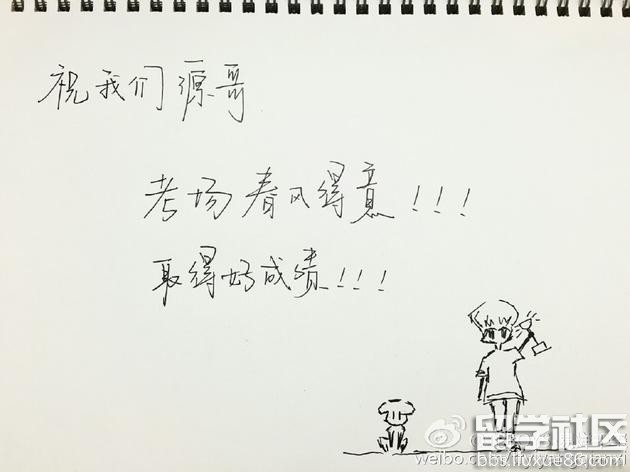 祝我们源哥
考场春风得意!!!
取得好成绩!!!
留学社区